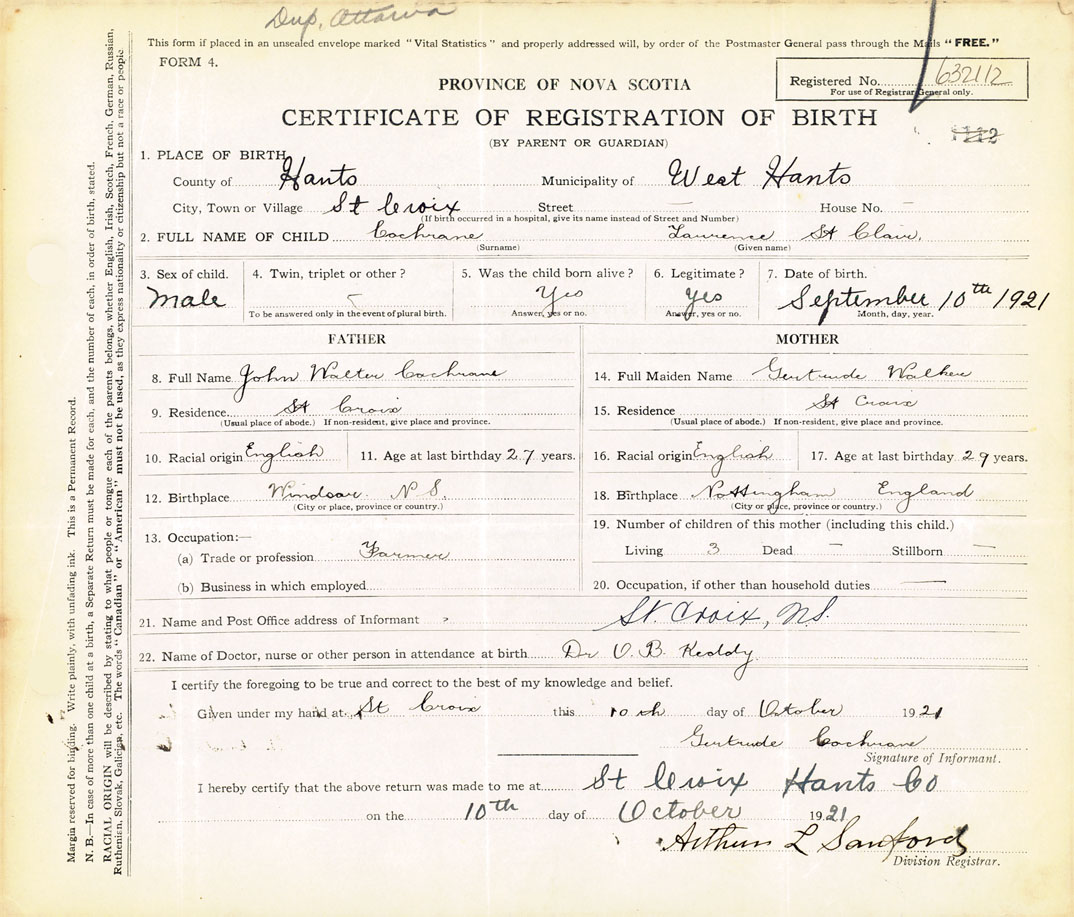 Dup. Ottawa
This form if placed in an unsealed envelope marked "Vital Statistics" and properly addressed will, by order of the Postmaster General pass through the Mails "FREE."
FORM 4.
Registered No. 632112
For use of Registrar General only.
PROVINCE OF NOVA SCOTIA
CERTIFICATE OF REGISTRATION OF BIRTH
(BY PARENT OR GUARDIAN)
1. PLACE OF BIRTH
County of Hants Municipality of West Hants
City, Town or Village St Croix Street — House No. —
(If birth occurred in a hospital, give its name instead of Street and Number)
2. FULL NAME OF CHILD Cochrane Laurence St Clair,
(Surname) (Given name)
3. Sex of child. 4. Twin, triplet or other? 5. Was the child born alive? 6. Legitimate? 7. Date of birth.
Male - Yes Yes September 10th 1921
To be answered only in the event of plural birth. Answer, yes or no. Answer, yes or no. Month, day, year.
FATHER
8. Full Name John Walter Cochrane
9. Residence St Croix
(Usual place of abode.) If non-resident, give place and province.
10. Racial origin English 11. Age at last birthday 27 years.
12. Birthplace Windsor N S.
(City or place, province or country.)
13. Occupation:—
(a) Trade or profession Farmer
(b) Business in which employed
MOTHER
14. Full Maiden Name Gertrude Walker
15. Residence St Croix
(Usual place of abode.) If non-resident, give place and province.
16. Racial origin English 17. Age at last birthday 29 years.
18. Birthplace Nottingham England
(City or place, province or country.)
19. Number of children of this mother (including this child.)
Living 3 Dead — Stillborn —
20. Occupation, if other than household duties —
21. Name and Post Office address of Informant St. Croix, N.S.
22. Name of Doctor, nurse or other person in attendance at birth Dr V. B. Keddy.
I certify the foregoing to be true and correct to the best of my knowledge and belief.
Given under my hand at St Croix this 10th day of October 1921
Gertrude Cochrane
Signature of Informant.
I hereby certify that the above return was made to me at St Croix Hants Co
on the 10th day of October 1921
Arthur L Sanford
Division Registrar.
Margin reserved for binding. Write plainly, with unfading ink. This is a Permanent Record.
N. B.—In case of more than one child at a birth, a Separate Return must be made for each, and the number of each, in order of birth, stated.
RACIAL ORIGIN will be described by stating to what people or tongue each of the parents belongs, whether English, Irish, Scotch, French, German, Russian,
Ruthenian, Slovak, Galician, etc. The words "Canadian" or "American" must not be used, as they express nationality or citizenship but not a race or people.